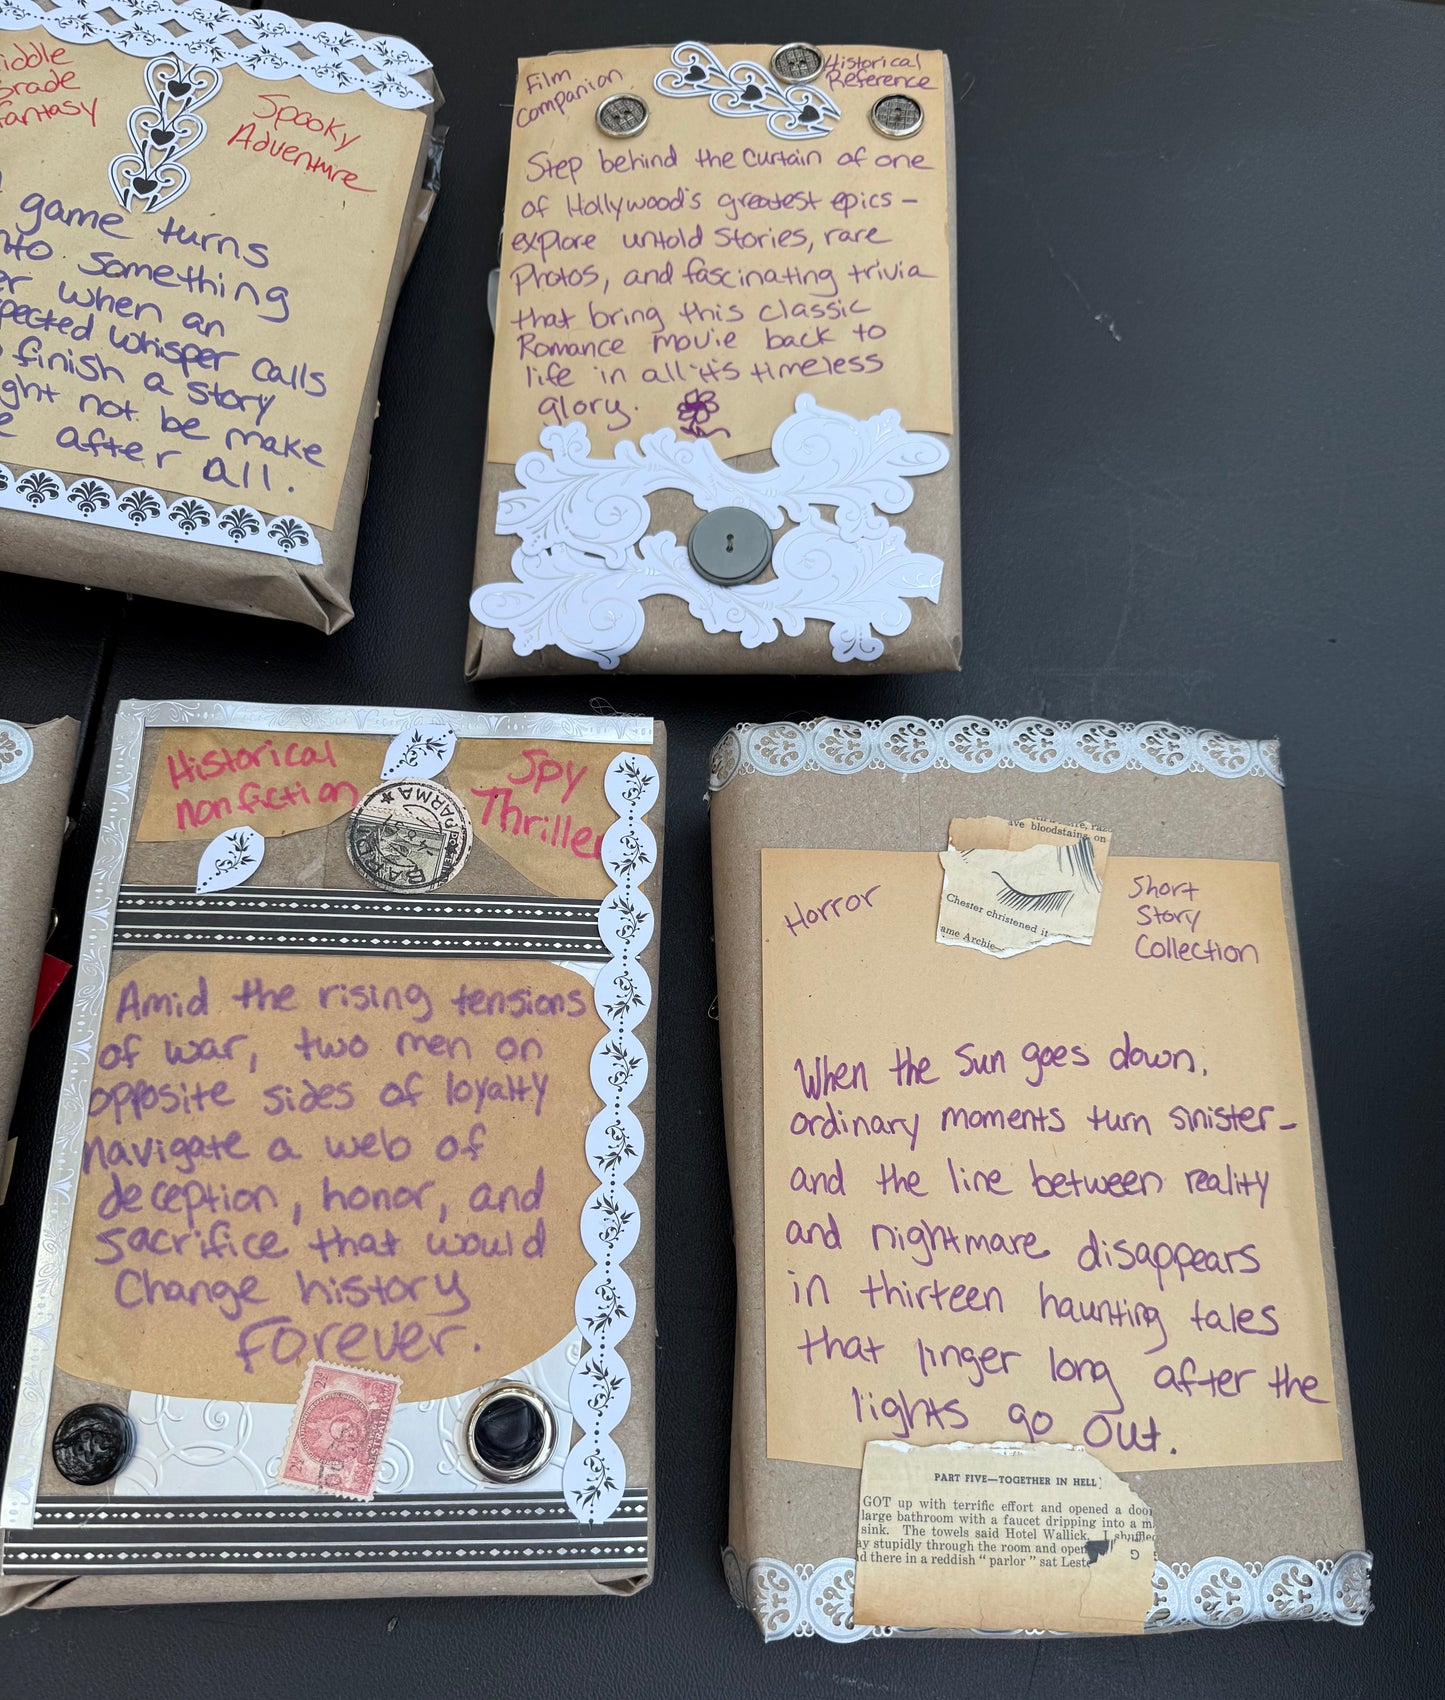 Grade
Fantasy
Spooky
Adventure
game turns
something
when an
whisper calls
finish a story
not be make
after all.
Film
Companion
Historical
Reference
Step behind the curtain of one
of Hollywood's greatest epics –
explore untold stories, rare
Photos, and fascinating trivia
that bring this classic
Romance movie back to
life in all it's timeless
glory.
Historical
nonfiction
Spy
Thriller
PARMA
Amid the rising tensions
of war, two men on
opposite sides of loyalty
navigate a web of
deception, honor, and
sacrifice that would
Change history
Forever.
2½
AUSTRALIA
Horror
Short
Story
Collection
bloodstains on
Chester christened it
ame Archie
When the Sun goes down,
ordinary moments turn sinister –
and the line between reality
and nightmare disappears
in thirteen haunting tales
that linger long after the
lights go out.
PART FIVE—TOGETHER IN HELL
GOT up with terrific effort and opened a door
large bathroom with a faucet dripping into a
sink. The towels said Hotel Wallick. I shuffled
stupidly through the room and open
there in a reddish "parlor" sat Leste
G